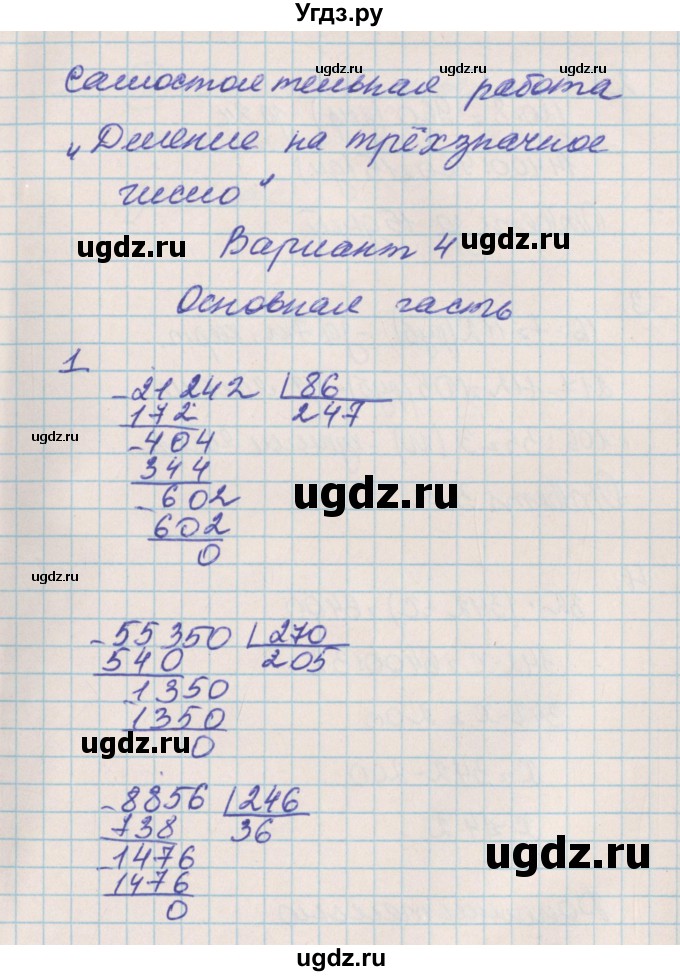 Угдз.ру
Самостоятельная работа
ugdz.ru ugdz.ru
„Деление на трёхзначное
ugdz.ru ugdz.ru
число"
Вариант 4
ugdz.ru ugdz.ru
Основная часть
1
- 21242 86
172 247
ugdz.ru ugdz.ru
- 404
344
ugdz.ru
- 602
602
0
ugdz.ru
- 55350 270
540 205
ugdz.ru ugdz.ru
1350
1350
ugdz.ru
0
- 8856 246
738 36
- 1476
ugdz.ru
1476
0
ugdz.ru